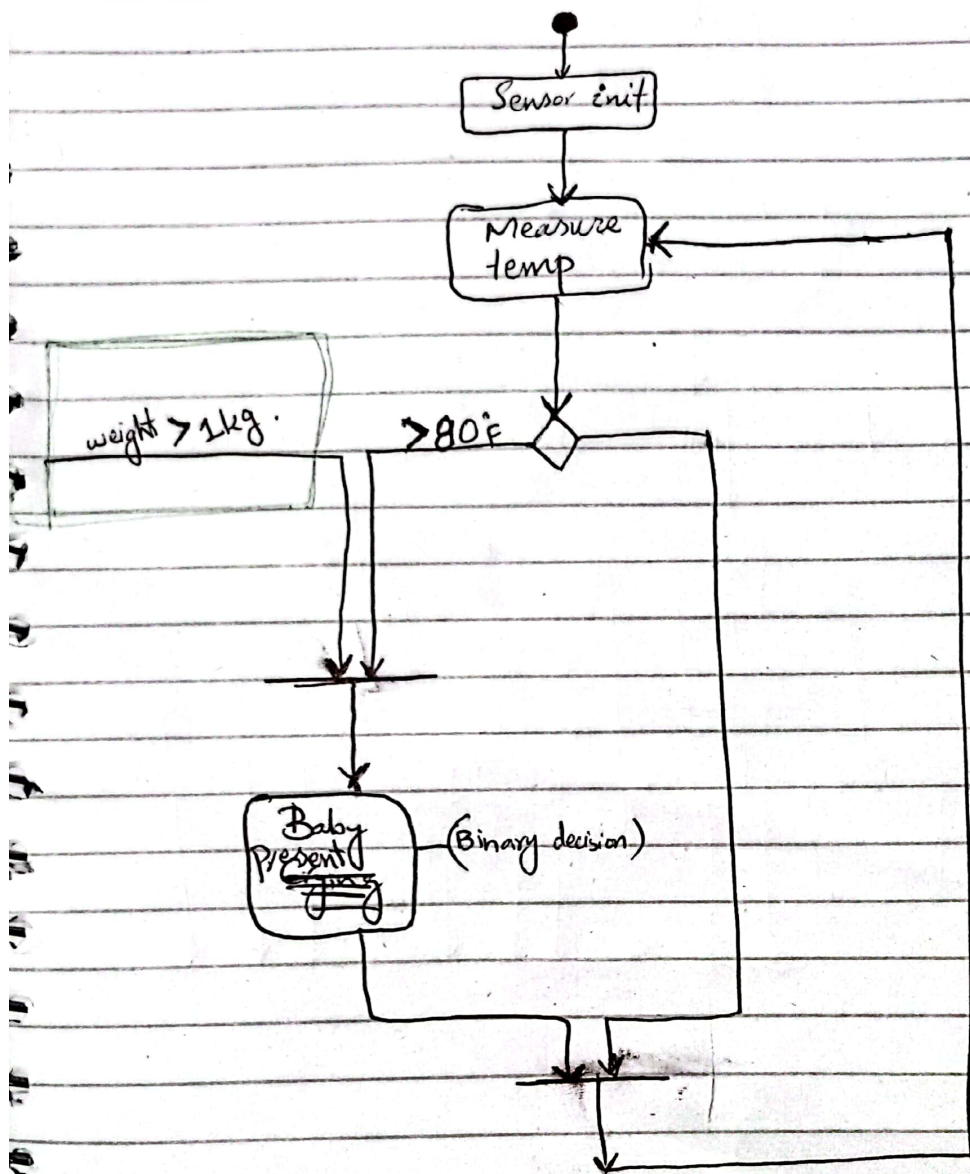 Sensor init
Measure
temp
weight > 1kg.
>80°F
Baby
Present
(Binary decision)